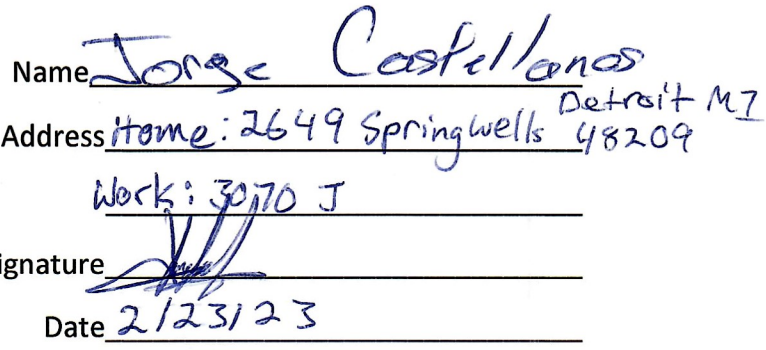 Name Jorge Castellanos
Address Home: 2649 Springwells Detroit MI 48209
Work: 3070 J
ignature
Date 2/23/23